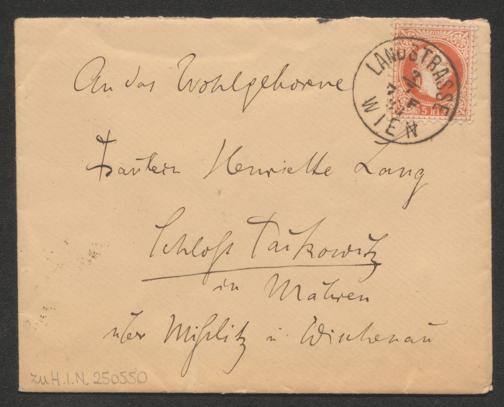 An das Wohlgeborne
Fräulein Henriette Lang
Schloß Taikowitz
in Mähren
über Mißlitz u Wischenau
LANDSTRASSE
WIEN
5 kr
zu H.I.N. 250550